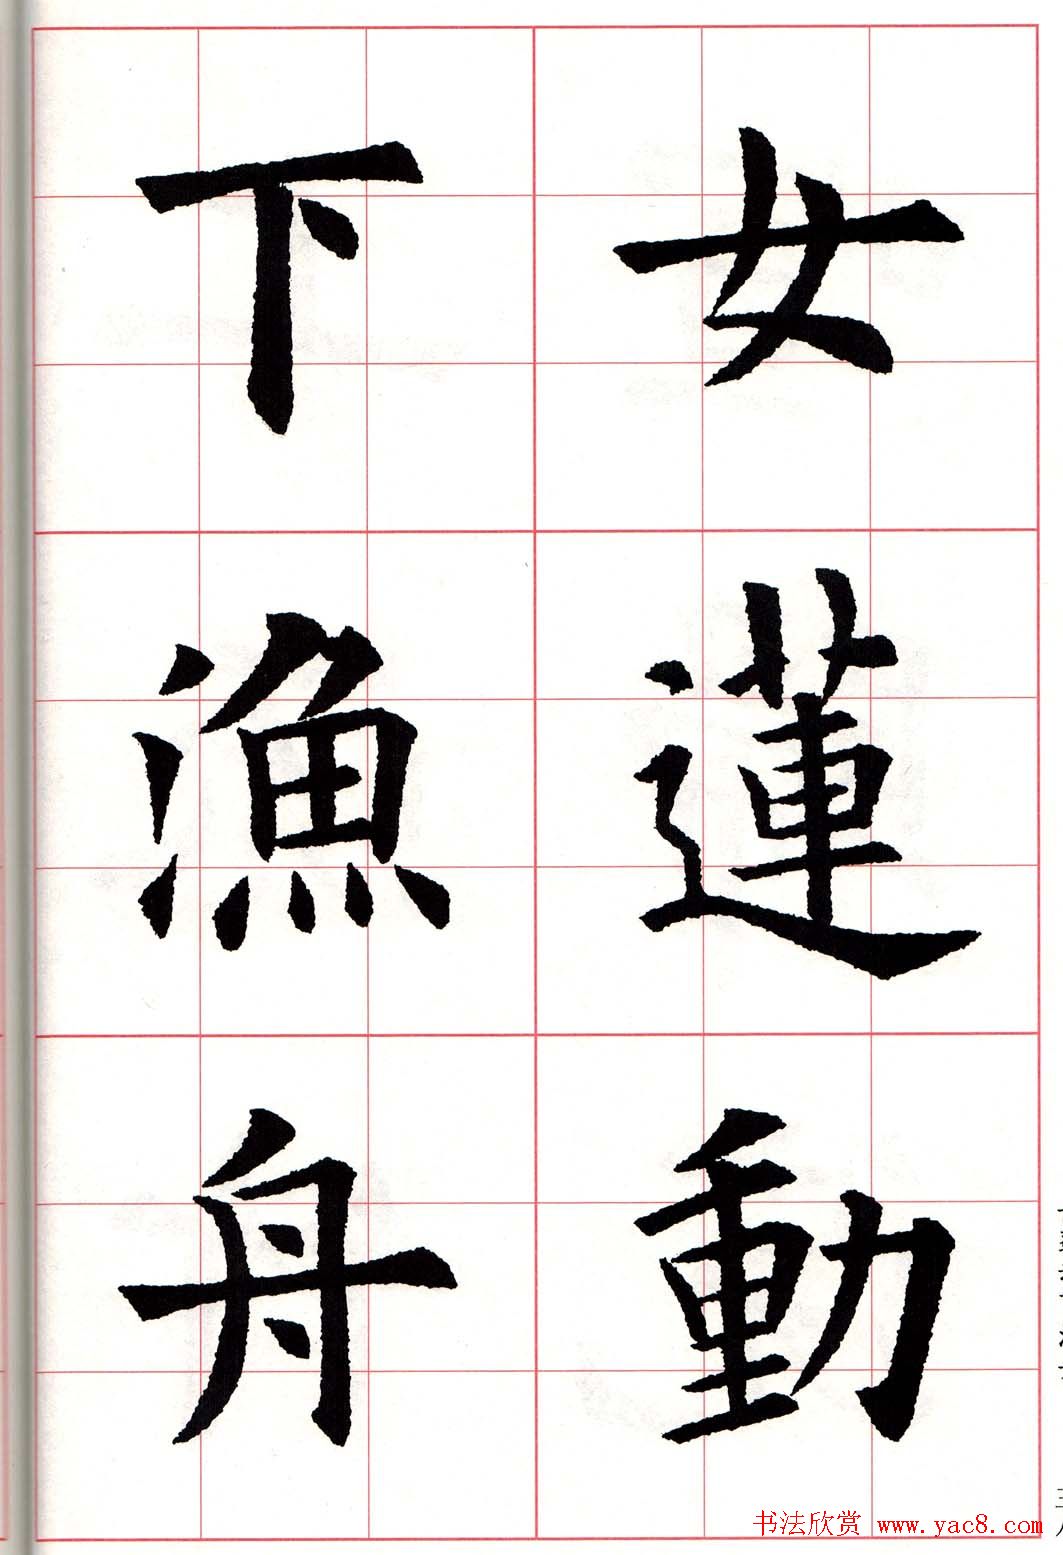 女蓮動
下漁舟
书法欣赏 www.yac8.com